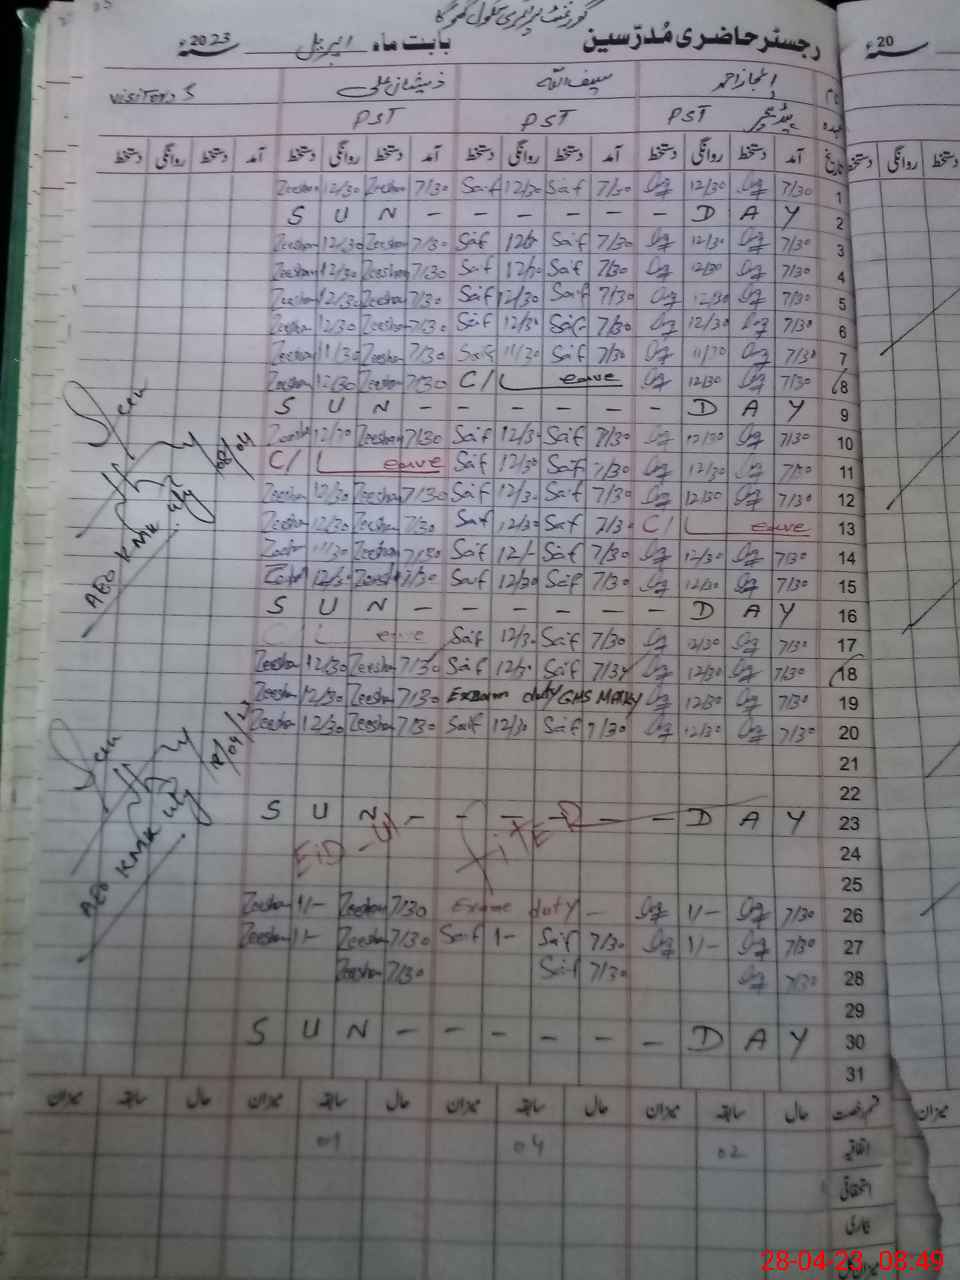 گورنمنٹ پرائمری سکول
رجسٹر حاضری مُدرّسین بابت ماہ اپریل 2023ء
20ء
نام اعجاز احمد سیف اللہ ذیشان علی Visitors
عہدہ PST PST PST
تاریخ آمد دستخط روانگی دستخط آمد دستخط روانگی دستخط آمد دستخط روانگی دستخط آمد دستخط روانگی دستخط
دستخط روانگی دستخط
Zeeshan 12/30 Zeeshan 7/30 Saif 12/30 Saif 7/30 12/30 7/30 1
S U N - - - - - - D A Y 2
Zeeshan 12/30 Zeeshan 7/30 Saif Saif 7/30 12/30 7/30 3
Zeeshan 12/30 Zeeshan 7/30 Saif Saif 7/30 12/30 7/30 4
Zeeshan 12/30 Zeeshan 7/30 Saif 12/30 Saif 7/30 12/30 7/30 5
Zeeshan 12/30 Zeeshan 7/30 Saif 12/30 Saif 7/30 12/30 7/30 6
Zeeshan 11/30 Zeeshan 7/30 Saif 11/30 Saif 7/30 11/30 7/30 7
Zeeshan 12/30 Zeeshan 7/30 C/Leave 12/30 7/30 8
S U N - - - - - - D A Y 9
Zeeshan 12/30 Zeeshan 7/30 Saif 12/30 Saif 7/30 12/30 7/30 10
C/Leave Saif 12/30 Saif 7/30 12/30 7/30 11
Zeeshan 12/30 Zeeshan 7/30 Saif 12/30 Saif 7/30 12/30 7/30 12
Zeeshan 12/30 Zeeshan 7/30 Saif 12/30 Saif 7/30 C/Leave 13
Zeeshan 11/30 Zeeshan 7/30 Saif 12/- Saif 7/30 12/30 7/30 14
Zeeshan 12/30 Zeeshan 7/30 Saif 12/30 Saif 7/30 12/30 7/30 15
S U N - - - - - - D A Y 16
C/Leave Saif 12/30 Saif 7/30 12/30 7/30 17
Zeeshan 12/30 Zeeshan 7/30 Saif 12/30 Saif 7/30 12/30 7/30 18
Zeeshan 12/30 Zeeshan 7/30 Exam duty GHS 12/30 7/30 19
Zeeshan 12/30 Zeeshan 7/30 Saif 12/30 Saif 7/30 12/30 7/30 20
21
22
S U N - - - - - D A Y 23
EID-UL FITER
24
25
Zeeshan 1/- Zeeshan 7/30 Exame duty - 1/- 7/30 26
Zeeshan 1- Zeeshan 7/30 Saif 1- Saif 7/30 1/- 7/30 27
Zeeshan 7/30 Saif 7/30 7/30 28
29
S U N - - - - - - D A Y 30
31
Seen
08/04
AEO KMK
Seen
18/04/23
AEO KMK
قسم رخصت حال سابقہ میزان حال سابقہ میزان حال سابقہ میزان حال سابقہ میزان
میزان
اتفاقیہ 02 04 01
استحقاقی
28-04-23 08:49